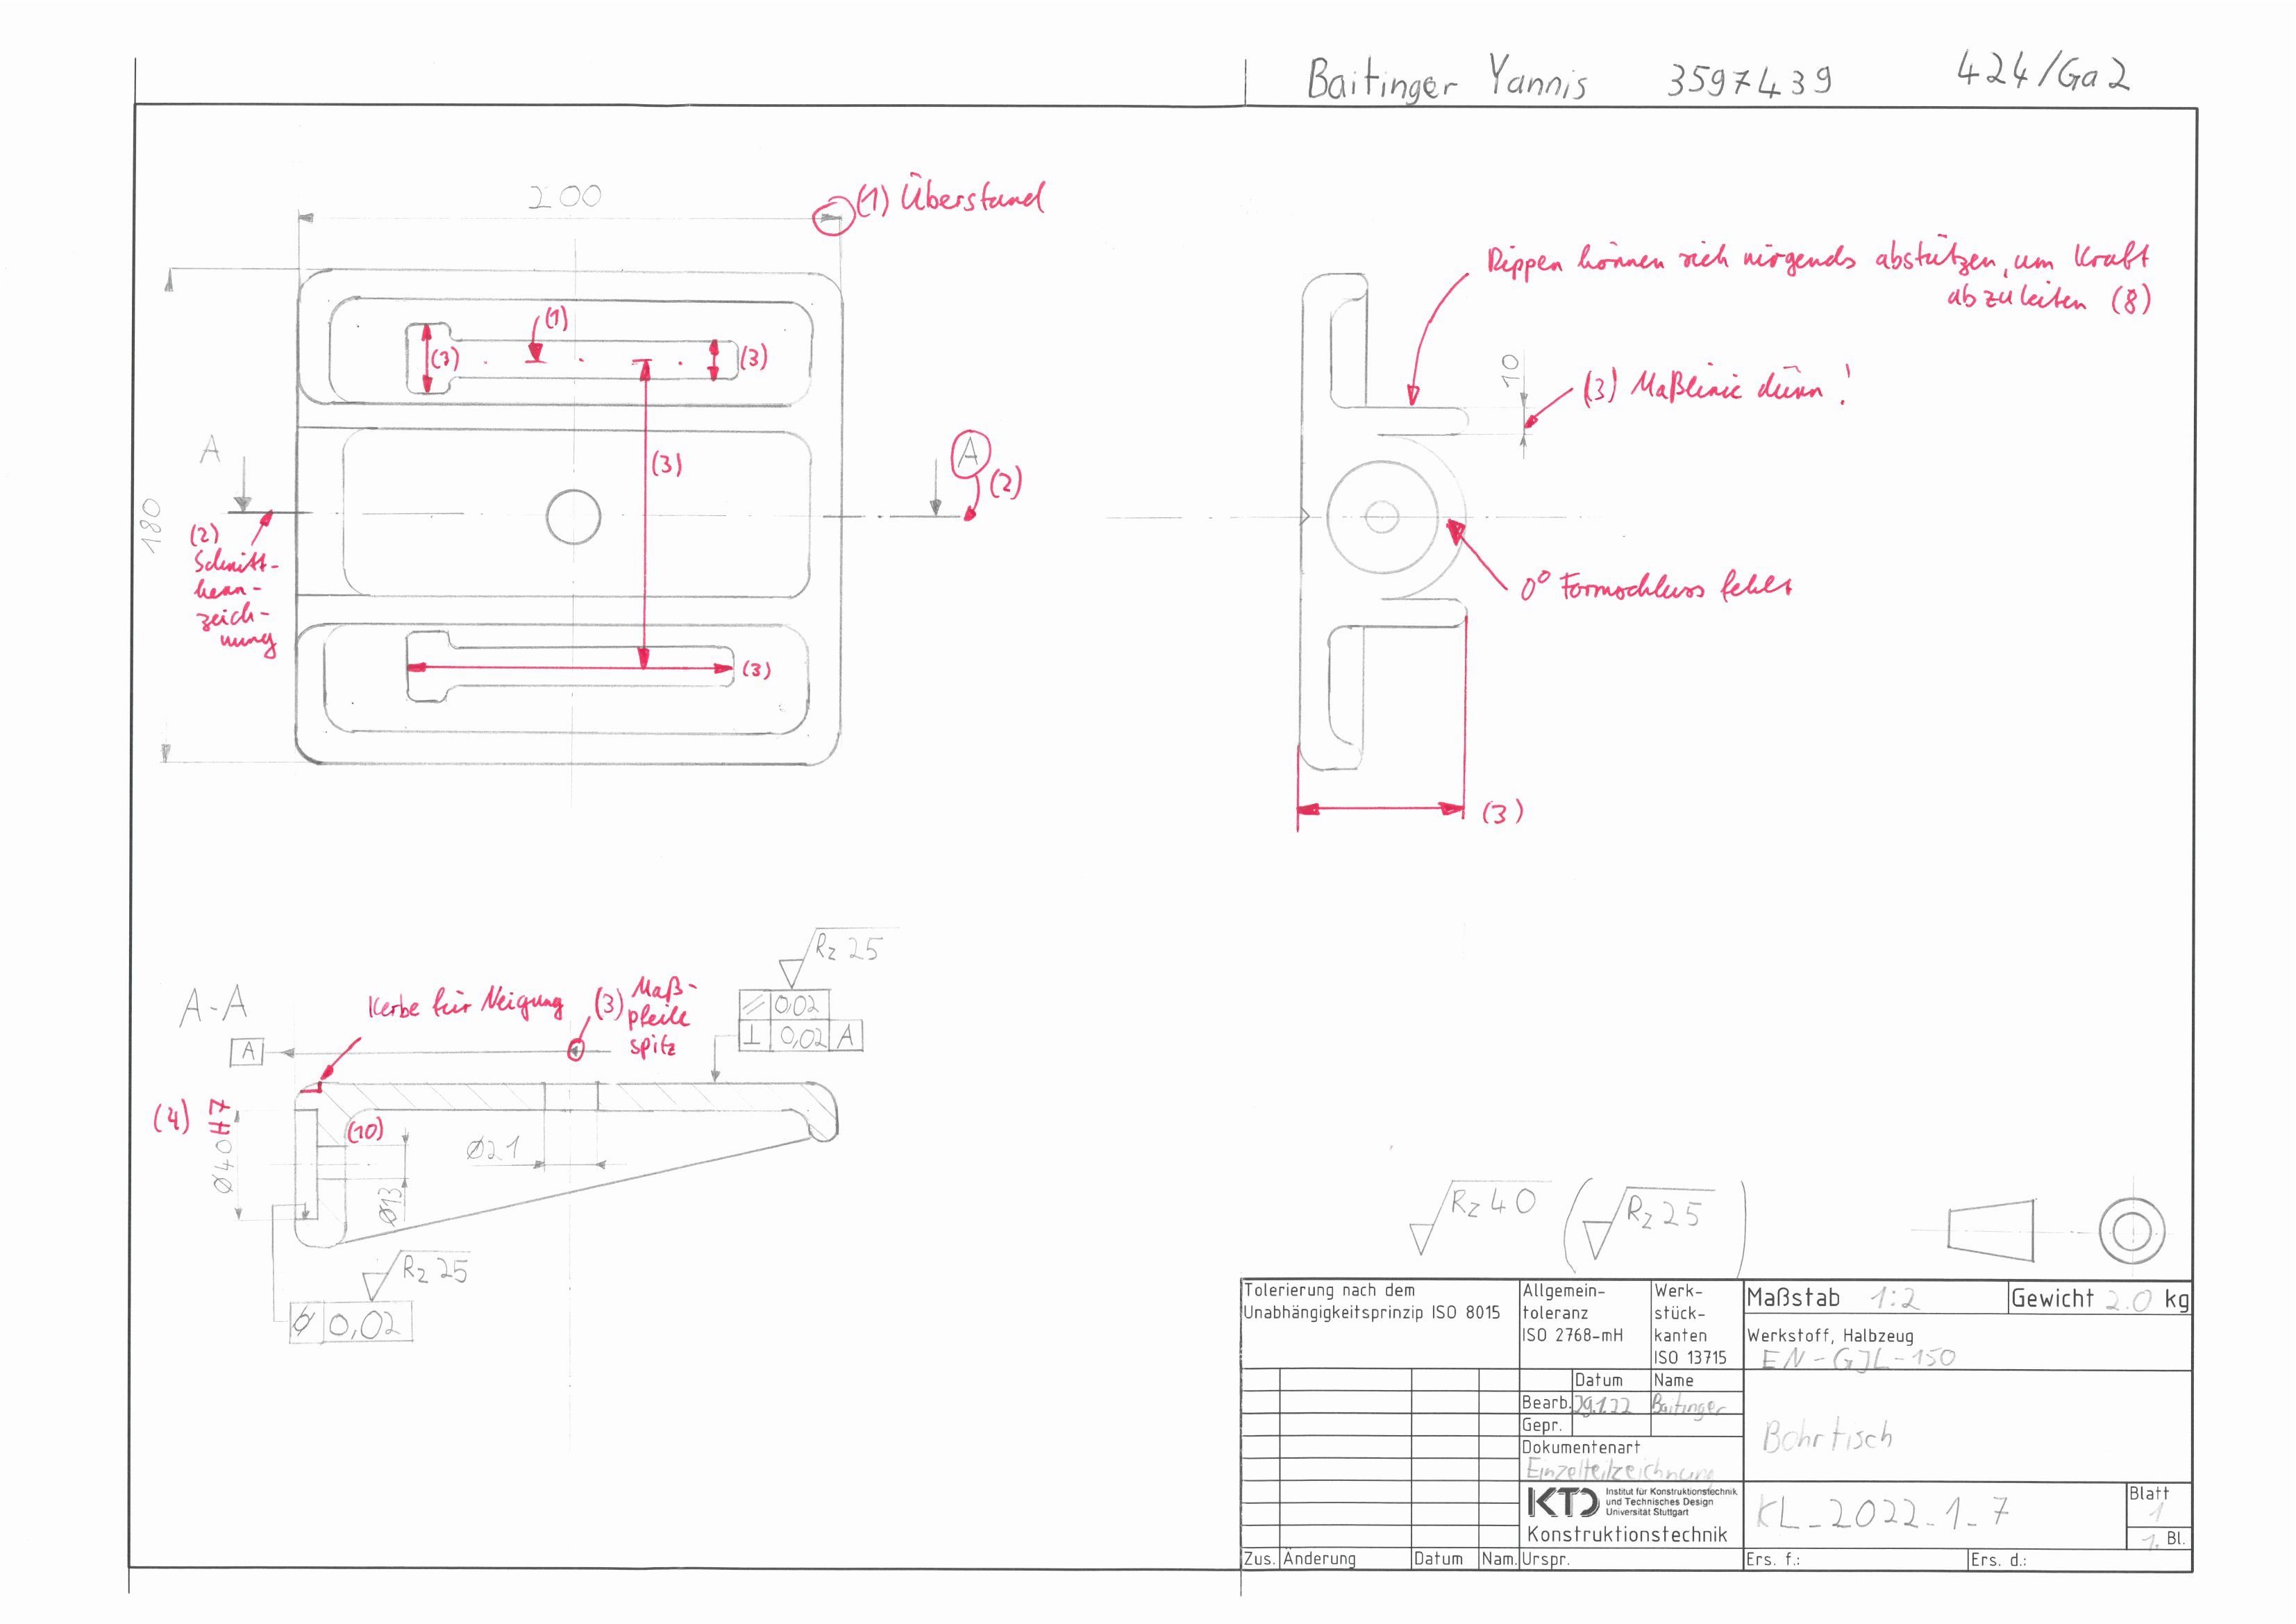 Baitinger Yannis 3597439 424/Ga2
200
(1) Überstand
(1)
(3)
(3)
(3)
(3)
A
A
(2)
180
(2)
Schnitt-
kenn-
zeich-
nung
Rippen können sich nirgends abstützen, um Kraft
abzuleiten (8)
10
(3) Maßlinie dünn!
0° Formschluss fehlt
(3)
A-A
Kerbe für Neigung
(3) Maß-
pfeile
spitz
Rz 25
// 0,02
⊥ 0,02 A
A
(4)
Ø40 H7
(10)
Ø21
Ø13
Rz 25
⌭ 0,02
Rz 40 (Rz 25)
Tolerierung nach dem
Unabhängigkeitsprinzip ISO 8015
Allgemein-
toleranz
ISO 2768-mH
Werk-
stück-
kanten
ISO 13715
Maßstab 1:2
Gewicht 2.0 kg
Werkstoff, Halbzeug
EN-GJL-150
Datum Name
Bearb. 29.1.22 Baitinger
Gepr.
Dokumentenart
Einzelteilzeichnung
Bohrtisch
KTD Institut für Konstruktionstechnik
und Technisches Design
Universität Stuttgart
Konstruktionstechnik
KL_2022_1_7
Blatt
1
1. Bl.
Zus. Änderung Datum Nam. Urspr. Ers. f.: Ers. d.: